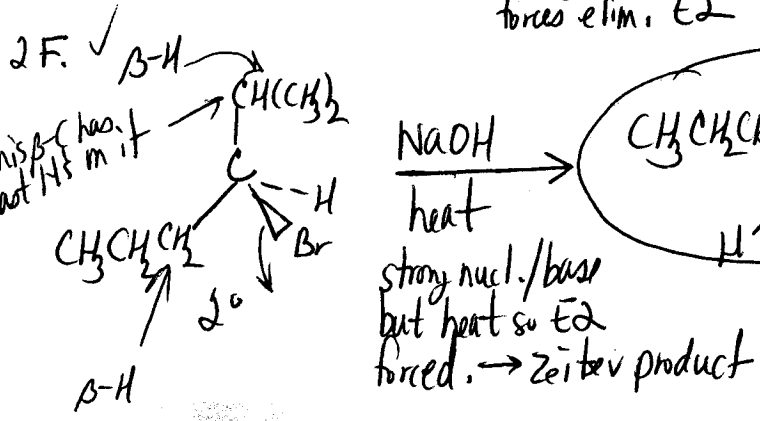 forces elim. E2
2F. ✓ β-H
CH(CH3)2
this β-C has
least H's in it
C
H
Br
CH3CH2CH2
2°
β-H
NaOH
heat
strong nucl./base
but heat so E2
forced. → Zeitsev product
CH3CH2C
H